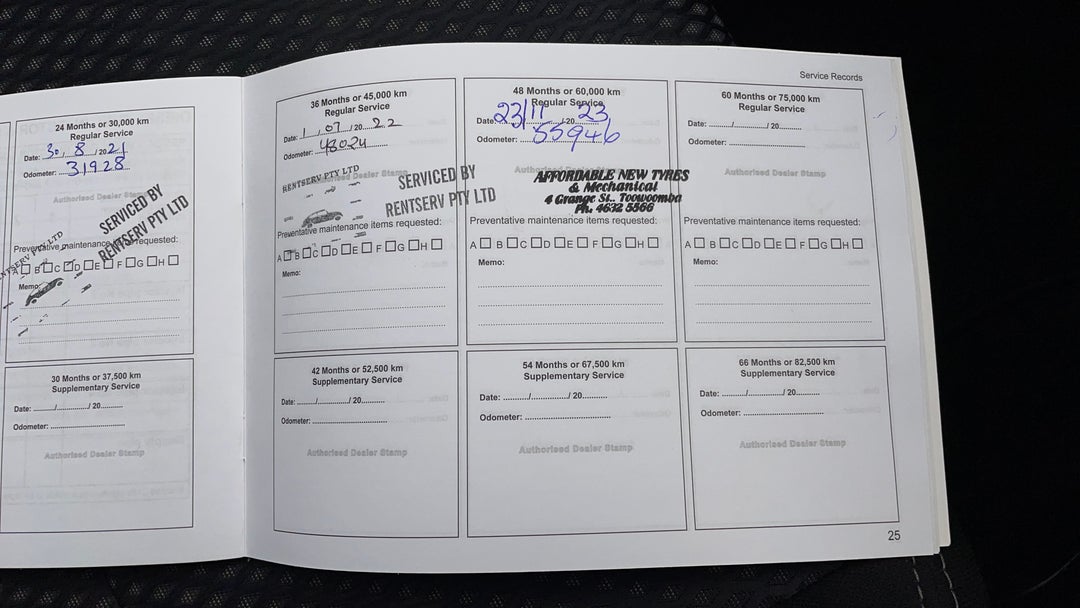 Service Records
24 Months or 30,000 km
Regular Service
Date: 30 . 8 / 2021
Odometer: 31928
Authorised Dealer Stamp
SERVICED BY
RENTSERV PTY LTD
Preventative maintenance items requested:
RENTSERV PTY LTD
A B C D E F G H
Memo:
30 Months or 37,500 km
Supplementary Service
Date: ......../............../ 20..........
Odometer: ..............................
Authorised Dealer Stamp
36 Months or 45,000 km
Regular Service
Date: 1 , 07 / 20 22
Odometer: 48024
Authorised Dealer Stamp
RENTSERV PTY LTD
SERVICED BY
RENTSERV PTY LTD
Preventative maintenance items requested:
A B C D E F G H
Memo:
48 Months or 60,000 km
Regular Service
Date: 23/11 /20 23
Odometer: 55946
AFFORDABLE NEW TYRES
& Mechanical
4 Grange St., Toowoomba
Ph. 4632 5566
Preventative maintenance items requested:
A B C D E F G H
Memo:
60 Months or 75,000 km
Regular Service
Date: ......../............../ 20..........
Odometer: ..............................
Authorised Dealer Stamp
Preventative maintenance items requested:
A B C D E F G H
Memo:
42 Months or 52,500 km
Supplementary Service
Date: ......../............../ 20..........
Odometer: ..............................
Authorised Dealer Stamp
54 Months or 67,500 km
Supplementary Service
Date: ......../............../ 20..........
Odometer: ..............................
Authorised Dealer Stamp
66 Months or 82,500 km
Supplementary Service
Date: ......../............../ 20..........
Odometer: ..............................
Authorised Dealer Stamp
25